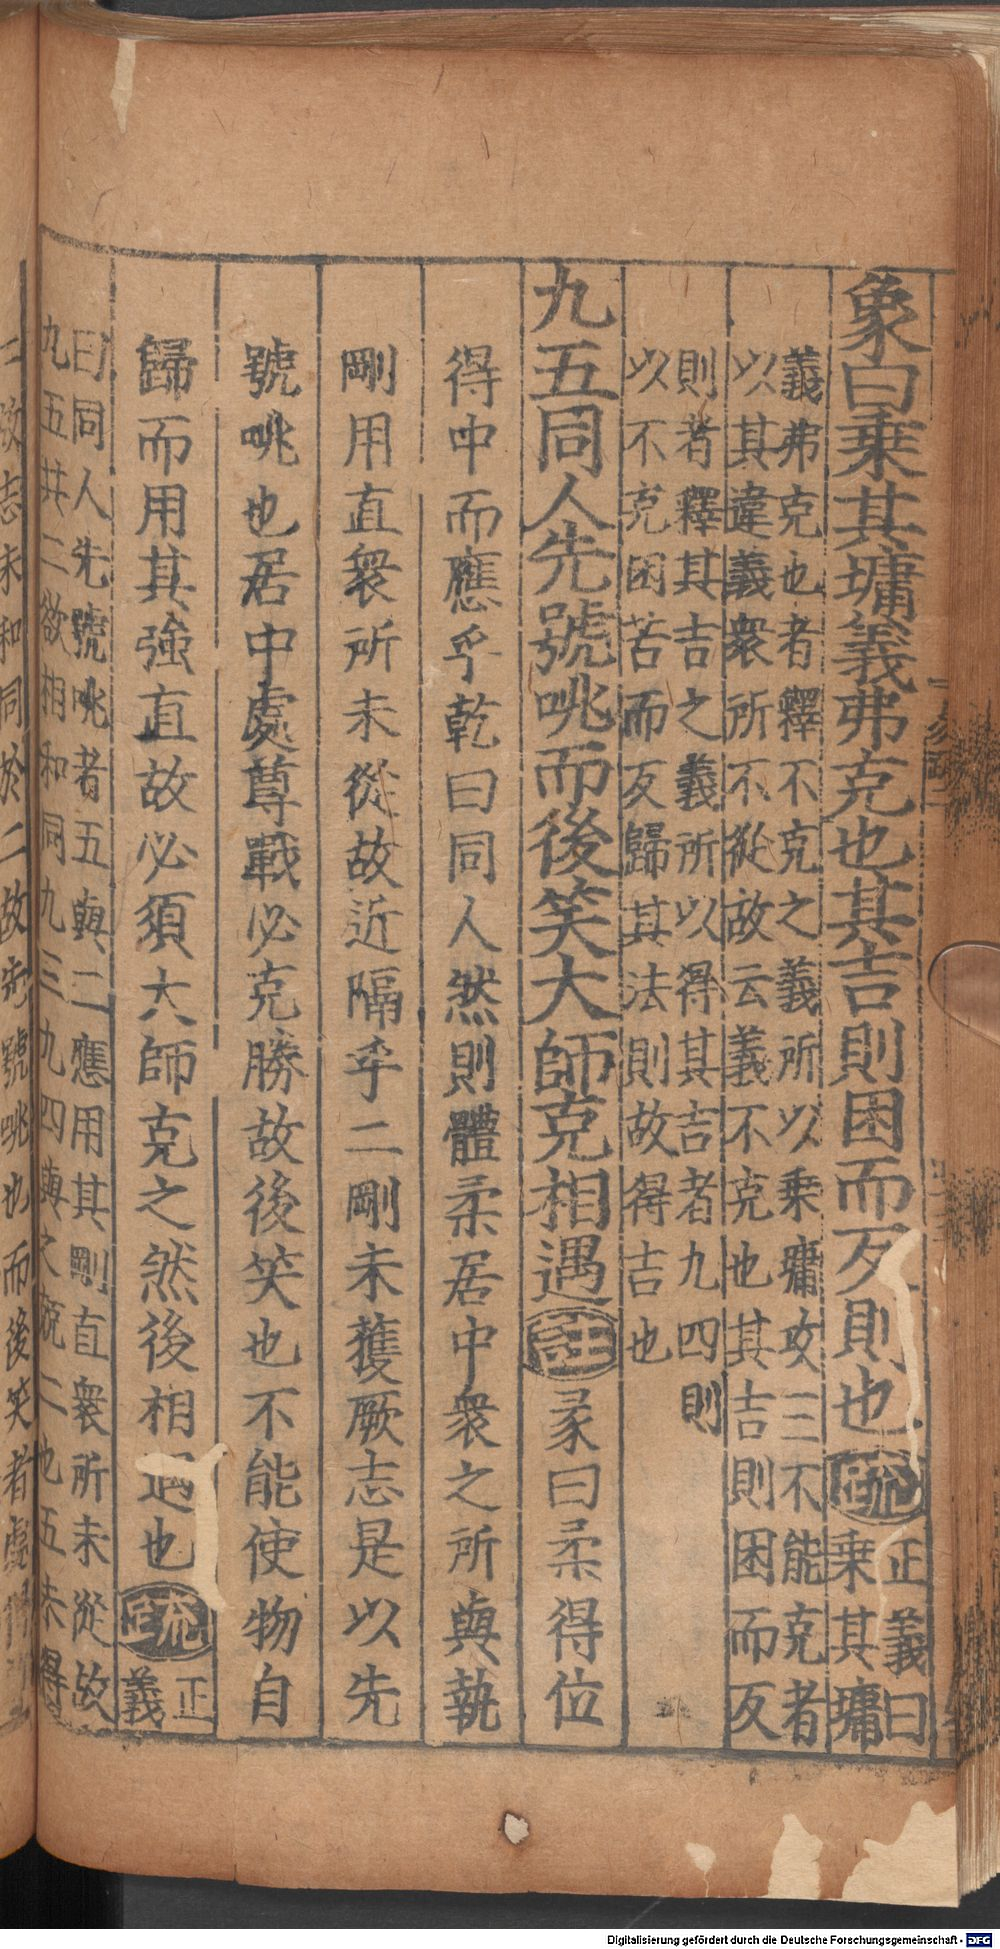 象曰乗其墉義弗克也其吉則困而反則也疏正義曰
乗其墉
義弗克也者釋不克之義所以乗墉攻三不能克者
以其違義衆所不從故云義不克也其吉則困而反
則者釋其吉之義所以得其吉者九四則
以不克困苦而反歸其法則故得吉也
九五同人先號咷而後笑大師克相遇註彖曰柔得位
得中而應乎乾曰同人然則體柔居中衆之所與執
剛用直衆所未從故近隔乎二剛未獲厥志是以先
號咷也居中處尊戰必克勝故後笑也不能使物自
歸而用其強直故必須大師克之然後相遇也疏正
義
曰同人先號咷者五與二應用其剛直衆所未從故
九五共二欲相和同九三九四與之競二也五未得
志未和同於二故先號咷也而後笑者處
Digitalisierung gefördert durch die Deutsche Forschungsgemeinschaft - DFG